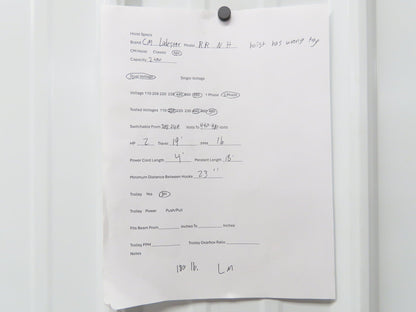 Hoist Specs
Brand CM Lodestar Model RR N H hoist has wrong tag
CM Hoist Classic
Capacity 2 ton
Dual Voltage Single Voltage
Voltage 110 208 220 230 460 1 Phase 3 Phase
Tested Voltages 110 208 220 230
Switchable From Volts To Volts
HP 2 Travel 19' FPM 16
Power Cord Length 4' Pendant Length 15'
Minimum Distance Between Hooks 23"
Trolley Yes No
Trolley Power Push/Pull
Fits Beam From Inches To Inches
Trolley FPM Trolley Overbox Ratio
Notes
180 lb.